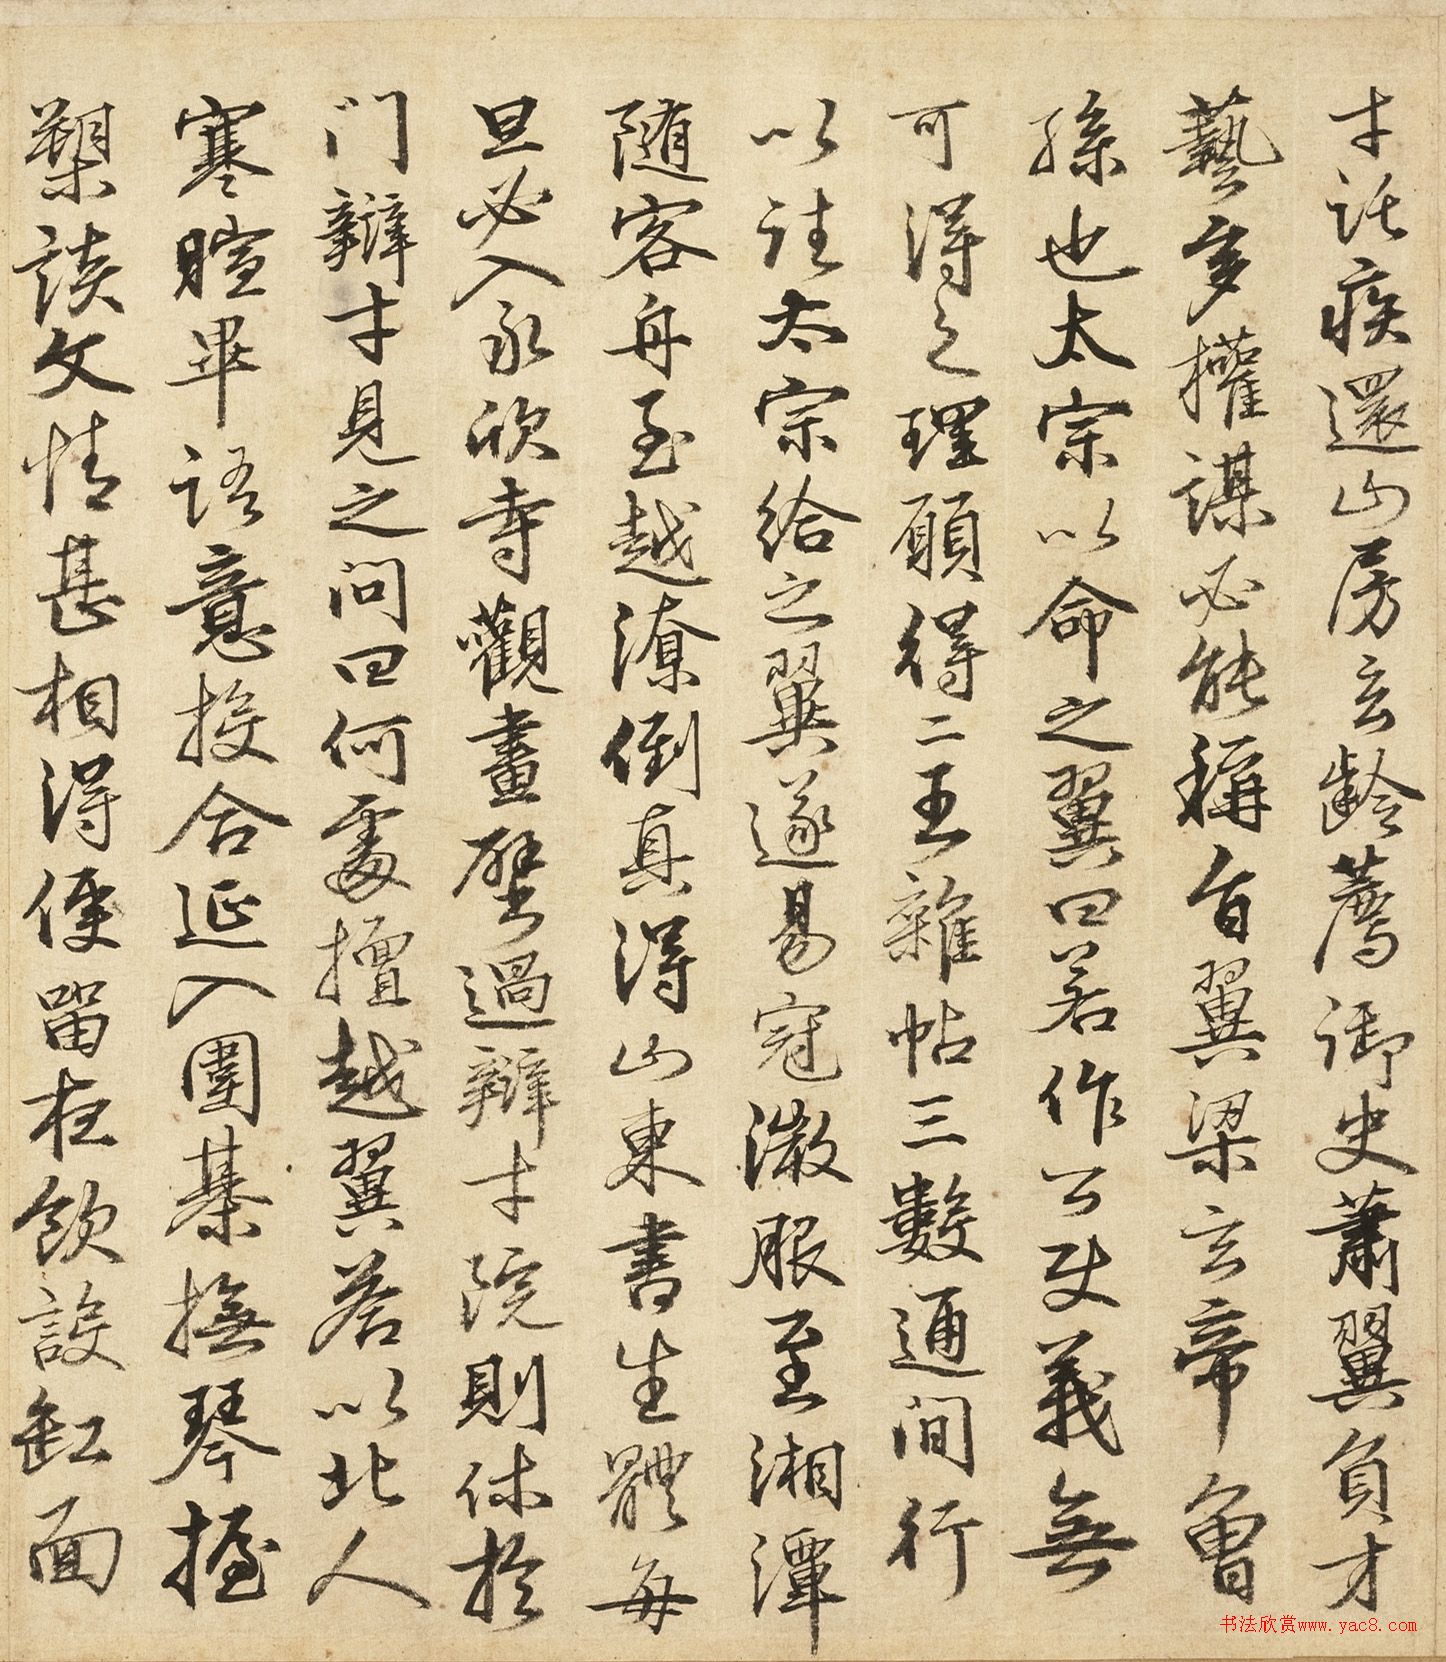 才託疾還山房玄齡薦御史蕭翼負才
藝多權謀必能稱旨翼梁玄帝曾
孫也太宗以命之翼曰若作公使義無
可得之理願得二王雜帖三數通間行
以詿太宗給之翼遂易冠微服至湘潭
隨客舟至越潦倒真得山東書生體每
旦必入永欣寺觀畫壁過辯才院則休於
门辯才見之問曰何處擅越翼答以北人
寒暄畢語意投合延入圍棊撫琴握
槊談文情甚相得便留在飲設缸面
书法欣赏www.yac8.com